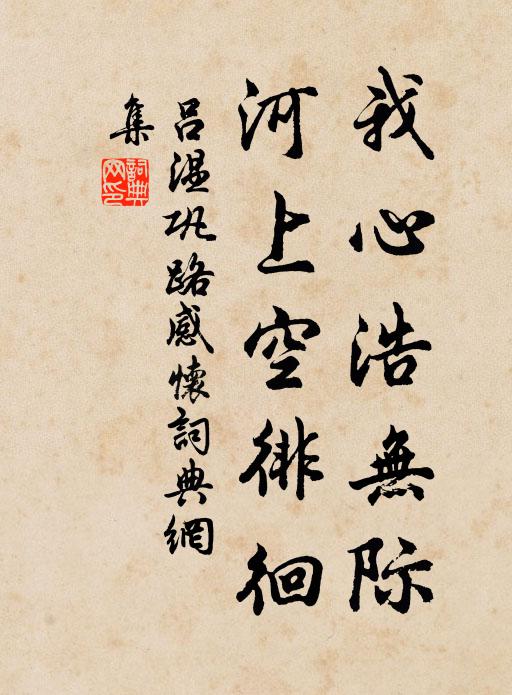 我心浩無际
河上空徘徊
吕温巩路感懷詞典網
集
詞典網印